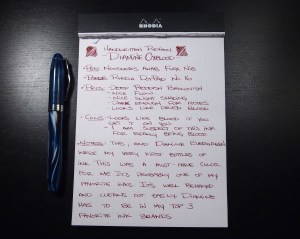 RHODIA
HANDWRITTEN REVIEW
- DIAMINE OXBLOOD
- PEN: NOODLERS AHAB FLEX NIB
- PAPER: RHODIA DOTPAD No 16
- PROS: - DEEP REDDISH BROWNISH
- NICE FLOW
- NICE SLIGHT SHADING
- DARK ENOUGH FOR NOTES
- LOOKS LIKE DRIED BLOOD
- CONS: - LOOKS LIKE BLOOD IF YOU
GET IT ON YOU
- I AM SUSPECT OF THIS INK
FOR REALLY BEING BLOOD
- NOTES: THIS, AND DIAMINE EVERGREEN
WERE MY VERY FIRST BOTTLES OF
INK. THIS WAS A MUST HAVE COLOR
FOR ME. IT'S DEFINITELY ONE OF MY
FAVORITE INKS. IT'S WELL BEHAVED
AND CLEANS OUT EASILY. DIAMINE
HAS TO BE IN MY TOP 3
FAVORITE INK BRANDS